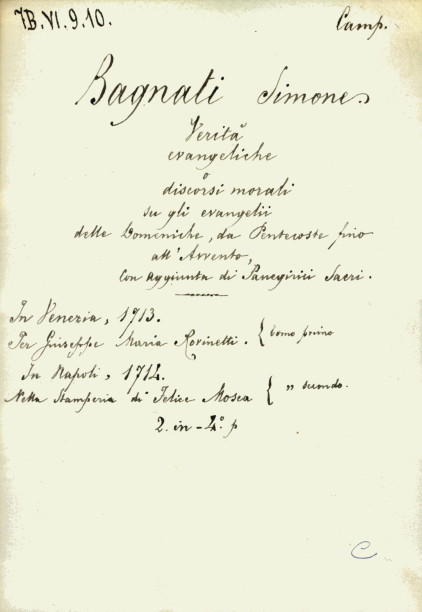 7B.VI.9.10.
Camp.
Bagnati Simone
Verità
evangeliche
o
discorsi morali
su gli evangelii
delle Domeniche, da Pentecoste fino
all'Avvento,
con aggiunta di Panegirici Sacri.
In Venezia, 1713.
Per Giuseppe Maria Rovinetti. { tomo primo
In Napoli, 1714.
Nella Stamperia di Felice Mosca { " secondo.
2. in-4° p
C